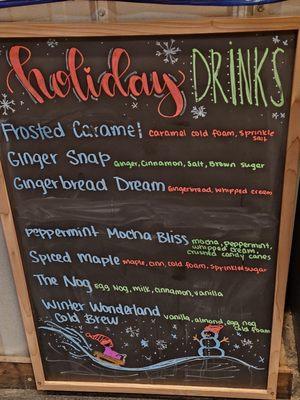 holiday DRINKS
Frosted Caramel caramel cold foam, sprinkle
salt
Ginger Snap Ginger, Cinnamon, Salt, Brown sugar
Gingerbread Dream Gingerbread, whipped cream
Peppermint Mocha Bliss mocha, peppermint,
whipped cream,
crushed candy canes
Spiced Maple Maple, cinn, cold foam, sprinkle sugar
The Nog Egg Nog, milk, cinnamon, vanilla
Winter Wonderland vanilla, almond, egg nog
Cold Brew cold foam